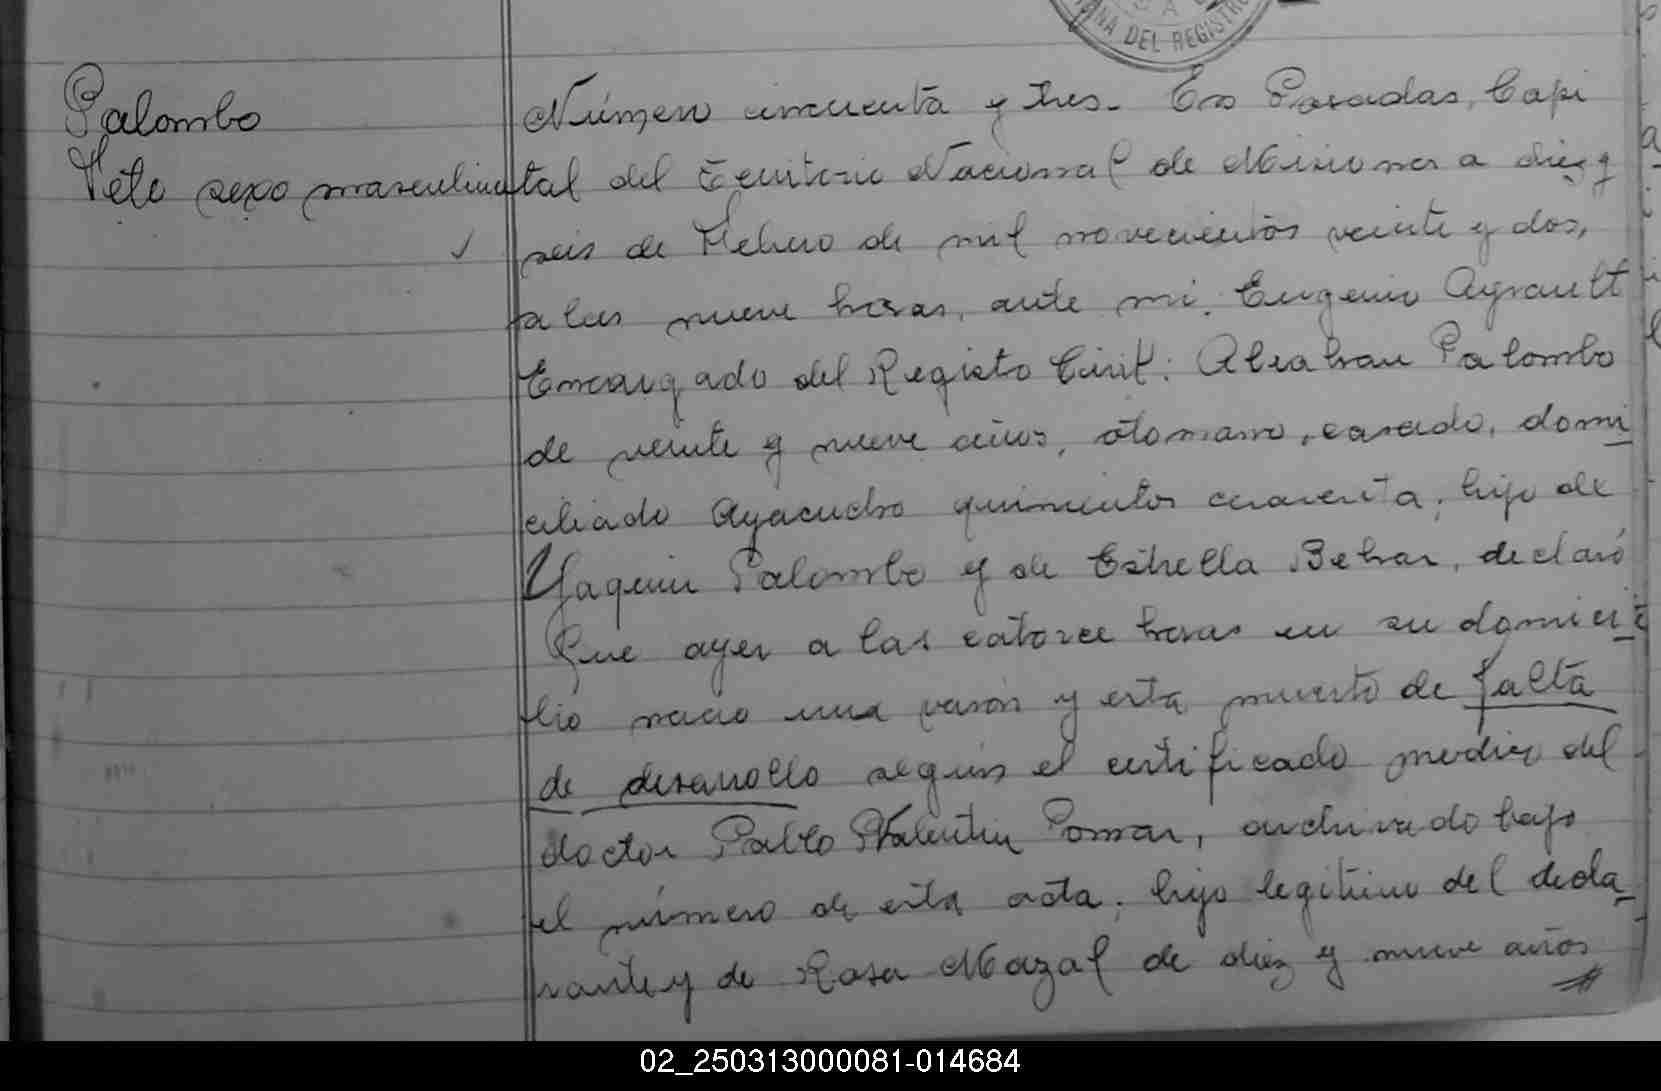 ANA DEL REGISTRO
Palombo
Feto sexo masculino
Número cincuenta y tres. En Posadas, Capi
tal del Territorio Nacional de Misiones a diez y
seis de Febrero de mil novecientos veinte y dos,
a las nueve horas, ante mi. Eugenio Ayrault
Encargado del Registo Civil: Abrahan Palombo
de veinte y nueve años, otomano, casado, domi
ciliado Ayacucho quinientos cuarenta, hijo de
Yaquin Palombo y de Estrella Behar, declaró
Que ayer a las catorce horas en su domici
lio nacio una varón y esta muerto de falta
de desarrollo según el certificado medico del
doctor Pablo Valentin Pomar, archivado bajo
el número de esta acta. hijo legitimo del decla
rante y de Rosa Mazal de diez y nueve años
02_250313000081-014684